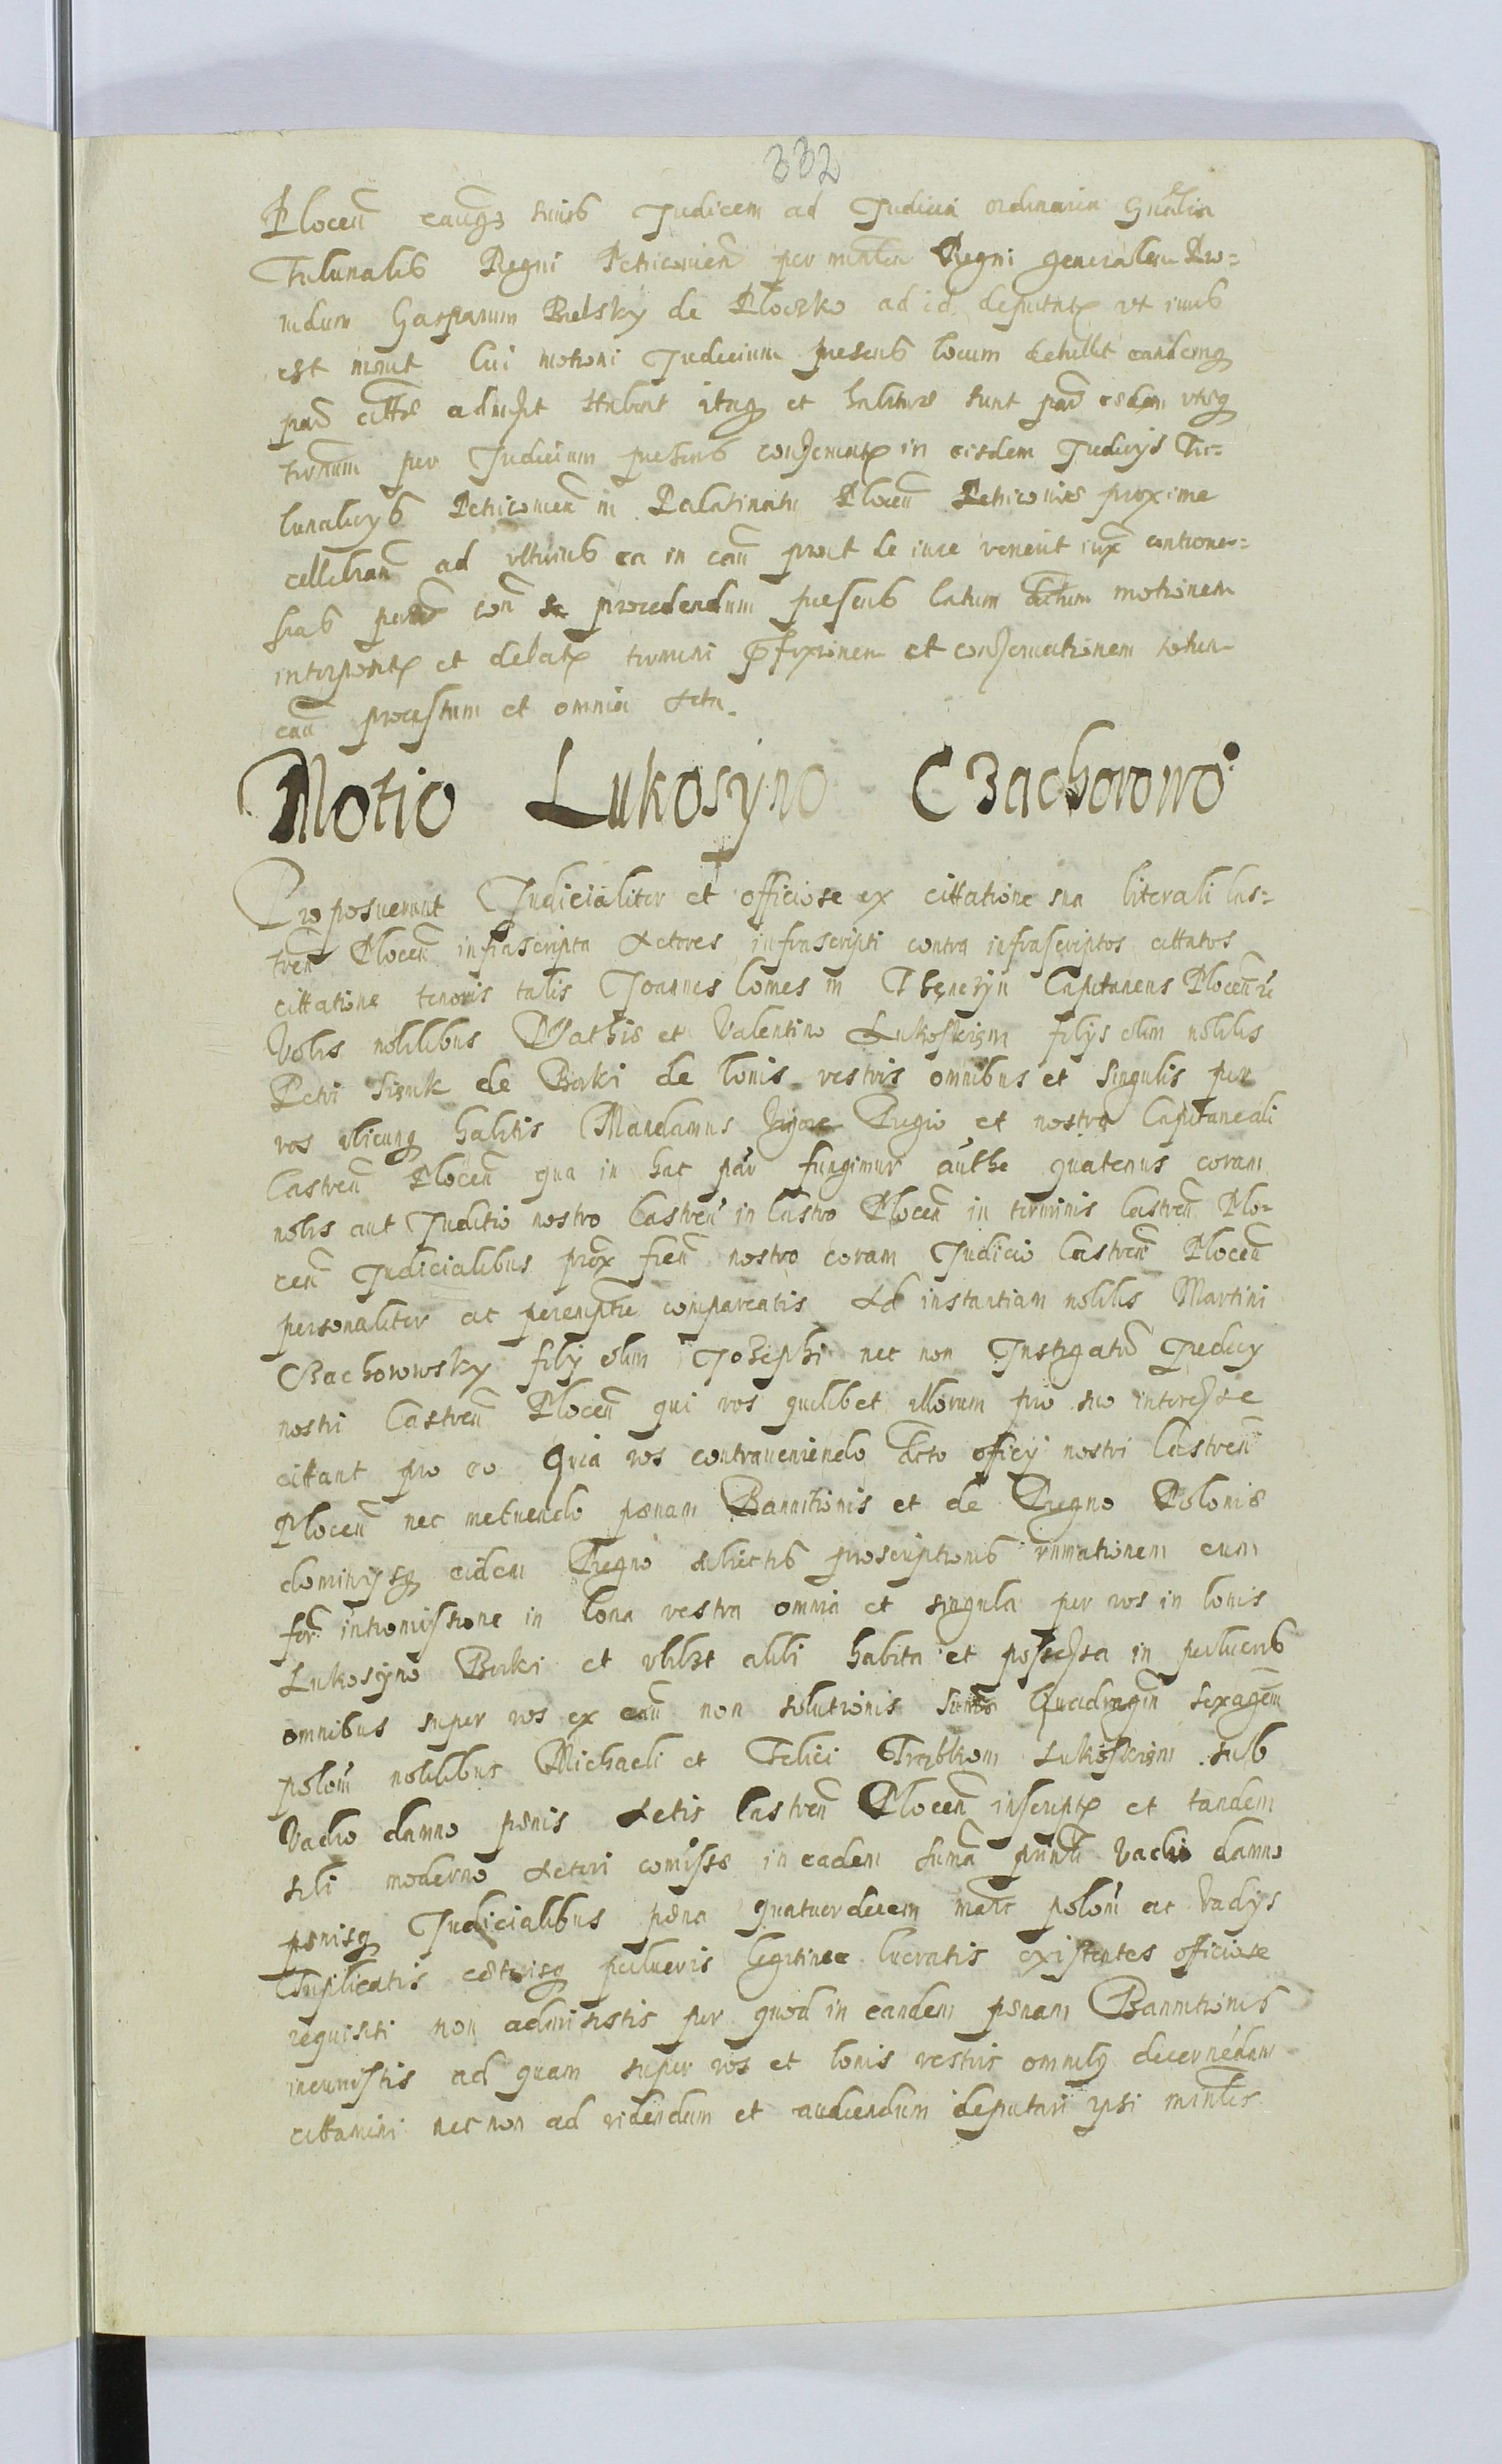 332
Plocen causgz suus Judicem ad Judicia ordinaria gnalia
Tribunalis Regni Petricovien per ministralem Regni generalem Pro-
vidum Gasparum Bielsky de Ploczko ad id deputat ut iuris
est movit Cui motioni Judicium presens locum detullit eandemq
par citte admisit Stabunt itaq et habituri sunt par eedem utrisq
terminum per Judicium presens conservat in eisdem Judicys Tri-
bunalicys Petricovien in Palatinatu Plocen Petricoviae proxime
cellebran ad ulterius ea in cau prout de iure venerit iux controver-
sias partium coram se procedendum presens latum dictum motionem
interposit et delat termini prefixionem et conservationem totum
cau processum et omnia Acta.
Motio Lukosyno Czachorowo
Proposuerunt Judicialiter et officiose ex cittatione sua literali Cas-
tren Plocen infrascripta Actores infrascripti contra infrascriptos cittatos
cittatione tenoris talis Joannes Comes in Thęnczyn Capitaneus Plocen
Vobis nobilibus Mathiae et Valentino Lukoskiem filys olim nobilis
Petri de Borki de bonis vestris omnibus et singulis per
vos ubicunq habitis Mandamus Vigore Regio et nostra Capitaneali
Castren Plocen qua in hac par fungimur authe quatenus coram
nobis aut Juditio nostro Castren in Castro Plocen in terminis Castren Plo-
cen Judicialibus prox fien nostro coram Judicio Castren Plocen
personaliter ac peremptre compareatis Ad instantiam nobilis Martini
Czachorowsky fily olim Josephi nec non Instigatoris Judicy
nostri Castren Plocen qui vos quilibet illorum pro suo interesse
cittant pro eo Quia vos contraveniendo Acto officy nostri Castren
Plocen nec metuendo paenam Bannitionis et de Regno Poloniae
dominysq eidem Regno adiectis proscriptionis rumationem cum
for intromissione in bona vestra omnia et singula per vos in bonis
Lukosyno Borki et ubilibet alibi habita et possessa in pulveris
omnibus super vos ex cau non solutionis Summae Quadragin sexagem
polon nobilibus Michaeli et Felici Trąbkom Lukoskiem sub
Vadio damno paenis Actis Castren Plocen inscript et tandem
sibi moderno Actori comissae in eadem suma prinli Vadio damno
paenisq Judicialibus paena quatuordecem marc polon ac Vadys
Triplicatis caeterisq pulveris legitime lucratis existentes officiose
requisiti non admisistis per quod in eandem paenam Bannitionis
incurristis ad quam super vos et bonis vestris omnibq decernedam
cittamini nec non ad videndum et audiendum deputari ipsi minlis